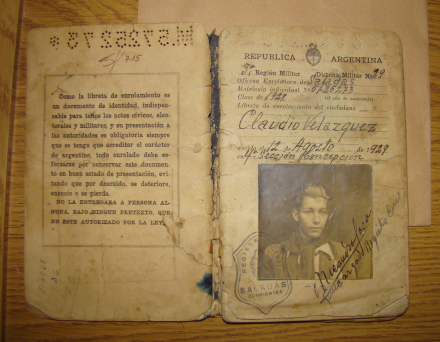 M.5725273 *
Como la libreta de enrolamiento es
un documento de identidad, indispen-
sable para todos los actos cívicos, elec-
torales y militares, y su presentación a
las autoridades es obligatoria siempre
que se tenga que acreditar el carácter
de argentino, todo enrolado debe es-
forzarse por conservar este documen-
to en buen estado de presentación, evi-
tando que por descuido, se deteriore,
ensucie o se pierda.
NO LA ENTREGARA A PERSONA AL-
GUNA, BAJO NINGUN PRETEXTO, QUE
NO ESTE AUTORIZADO POR LA LEY.
REPUBLICA ARGENTINA
Región Militar Distrito Militar 29
Oficina Enroladora de Saladas
Matrícula individual 5725273
Clase de 1921
Libreta de enrolamiento del ciudadano
Claudio Velázquez
12 de Agosto de 1929
Sección Concepción
REGISTRO
SALADAS
CORRIENTES